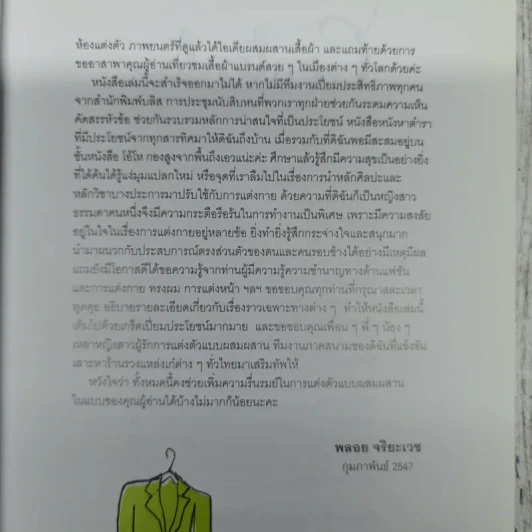 ห้องแต่งตัว ภาพยนตร์ที่ดูแล้วได้ไอเดียผสมผสานเสื้อผ้า และแถมท้ายด้วยการ
ขออาสาพาคุณผู้อ่านเที่ยวชมเสื้อผ้าแบรนด์สวย ๆ ในเมืองต่าง ๆ ทั่วโลกด้วยค่ะ
หนังสือเล่มนี้จะสำเร็จออกมาไม่ได้ หากไม่มีทีมงานเปี่ยมประสิทธิภาพทุกคน
จากสำนักพิมพ์บลิส การประชุมนับสิบหนที่พวกเราทุกฝ่ายช่วยกันระดมความเห็น
คัดสรรหัวข้อ ช่วยกันรวบรวมหลักการน่าสนใจที่เป็นประโยชน์ หนังสือหนังหาตำรา
ที่มีประโยชน์จากทุกสารทิศมาให้ดิฉันถึงบ้าน เมื่อรวมกับที่ดิฉันพอมีสะสมอยู่บน
ชั้นหนังสือ โอ้โห กองสูงจากพื้นถึงเอวแน่ะค่ะ ศึกษาแล้วรู้สึกมีความสุขเป็นอย่างยิ่ง
ที่ได้ค้นได้รู้แง่มุมแปลกใหม่ หรือจุดที่เราลืมไปในเรื่องการนำหลักศิลปะและ
หลักวิชาบางประการมาปรับใช้กับการแต่งกาย ด้วยความที่ดิฉันก็เป็นหญิงสาว
ธรรมดาคนหนึ่งจึงมีความกระตือรือร้นในการทำงานเป็นพิเศษ เพราะมีความสงสัย
อยู่ในใจในเรื่องการแต่งกายอยู่หลายข้อ ยิ่งทำยิ่งรู้สึกกระจ่างใจและสนุกมาก
นำมาผนวกกับประสบการณ์ตรงส่วนตัวของตนและคนรอบข้างได้อย่างมีเหตุมีผล
แถมยังมีโอกาสดีได้ขอความรู้จากท่านผู้มีความรู้ความชำนาญทางด้านแฟชั่น
และการแต่งกาย ทรงผม การแต่งหน้า ฯลฯ ขอขอบคุณทุกท่านที่กรุณาสละเวลา
พูดคุย อธิบายรายละเอียดเกี่ยวกับเรื่องราวเฉพาะทางต่าง ๆ ทำให้หนังสือเล่มนี้
เต็มไปด้วยเกร็ดเปี่ยมประโยชน์มากมาย และขอขอบคุณเพื่อน ๆ พี่ ๆ น้อง ๆ
เหล่าหญิงสาวผู้รักการแต่งตัวแบบผสมผสาน ทีมงานภาคสนามของดิฉันที่แข็งขัน
เสาะหาร้านรวงแหล่งเก๋ต่าง ๆ ทั่วไทยมาเสริมทัพให้
หวังใจว่า ทั้งหมดนี้คงช่วยเพิ่มความรื่นรมย์ในการแต่งตัวแบบผสมผสาน
ในแบบของคุณผู้อ่านได้บ้างไม่มากก็น้อยนะคะ
พลอย จริยะเวช
กุมภาพันธ์ 2547